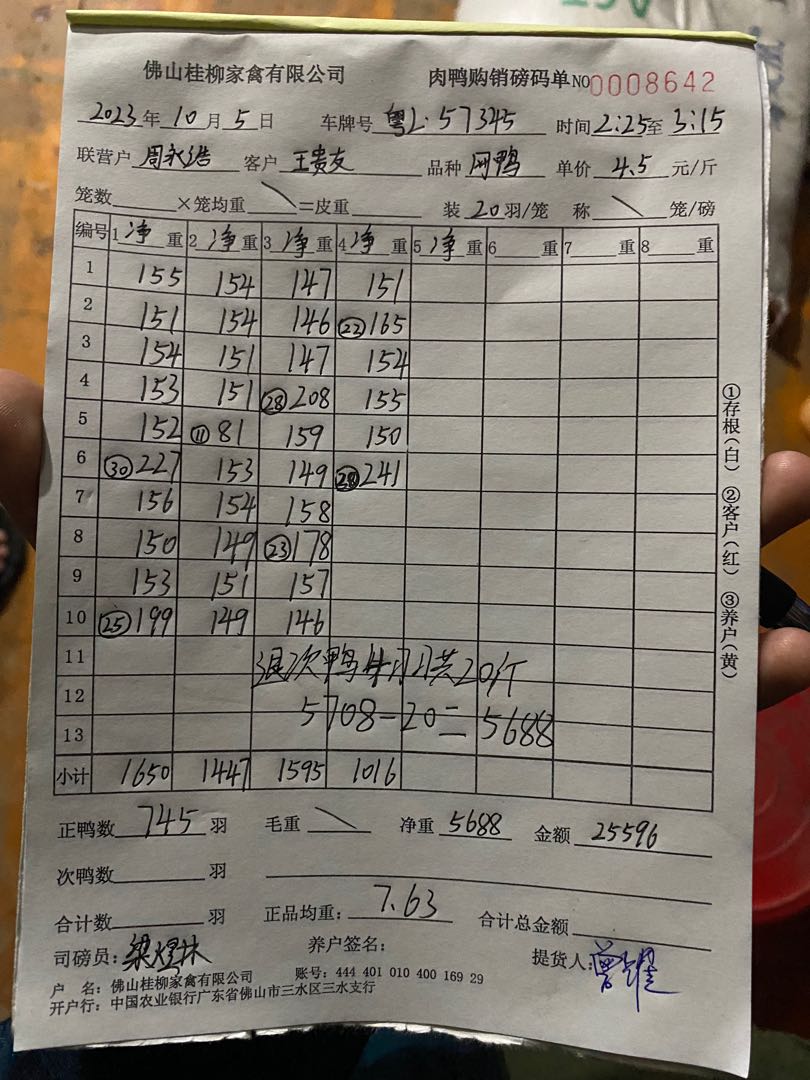 佛山桂柳家禽有限公司 肉鸭购销磅码单 NO 0008642
2023年10月5日 车牌号 粤L·57345 时间2:25至3:15
联营户 周永浩 客户 王贵友 品种 网鸭 单价 4.5 元/斤
笼数 ×笼均重 \ =皮重 装 20 羽/笼 称 \ 笼/磅
编号 1 净 重 2 净 重 3 净 重 4 净 重 5 净 重 6 重 7 重 8 重
1 155 154 147 151
2 151 154 146 ㉒165
3 154 151 147 154
4 153 151 ㉘208 155
5 152 ⑪81 159 150
6 ㉚227 153 149 241
7 156 154 158
8 150 149 ㉓178
9 153 151 157
10 ㉕199 149 146
11 退次鸭 共20斤
12 5708-20=5688
13
小计 1650 1447 1595 1016
正鸭数 745 羽 毛重 \ 净重 5688 金额 25596
次鸭数 羽
合计数 羽 正品均重: 7.63 合计总金额
司磅员: 梁煜林 养户签名: 提货人:
户 名: 佛山桂柳家禽有限公司 账号: 444 401 010 400 169 29
开户行: 中国农业银行广东省佛山市三水区三水支行
①存根(白) ②客户(红) ③养户(黄)